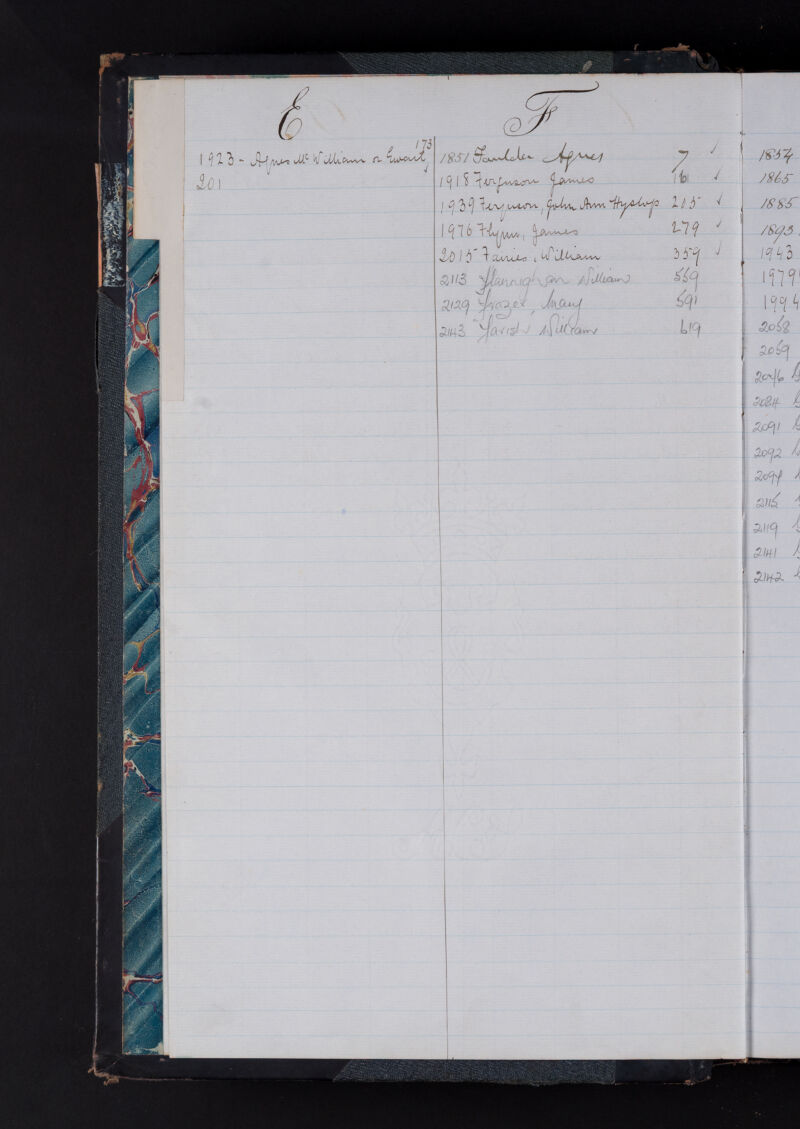 E
1923 - Agnes McWilliam or Ewart, 173
201
F
1851 Faulder Agnes 7 ✓
1918 Ferguson James 161 ✓
1939 Ferguson, John Ann Hyslop 215 ✓
1976 Flynn, James 279 ✓
2015 Famies, William 359 ✓
2113 Flannighan William 559
2129 Frazer, Mary 591
2143 Farish William 619
1854
1865
1885
1893
1943
1979
1994
2058
2059
2076
2084
2091
2092
2094
2115
2119
2141
2142